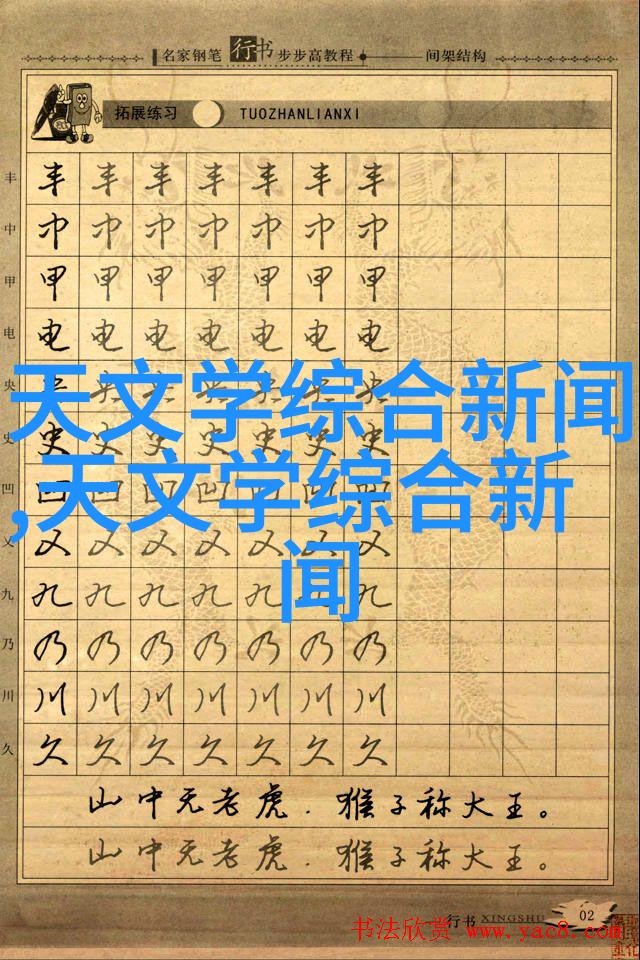 名家钢笔行书步步高教程 间架结构
拓展练习 TUOZHANLIANXI
丰 丰 丰 丰 丰 丰 丰 丰
中 中 中 中 中 中 中 中
甲 甲 甲 甲 甲 甲 甲 甲
电 电 电 电 电 电 电 电
央 央 央 央 央 央 央 央
天文学综合新闻
史 史 史 史 史 史 史 史
凹 凹 凹 凹 凹 凹
,天文学综合新
乂 乂 乂 乂 乂 乂 乂 乂
闻
九 九 九 九 九 九 九 九
乃 乃 乃 乃 乃 乃 乃 乃
川 川 川 川 川 川 川 川
久 久 久 久 久 久 久 久
山中无老虎.猴子称大王。
山中无老虎.猴子称大王。
行书 XINGSHU 02
书法欣赏 www.yac8.com